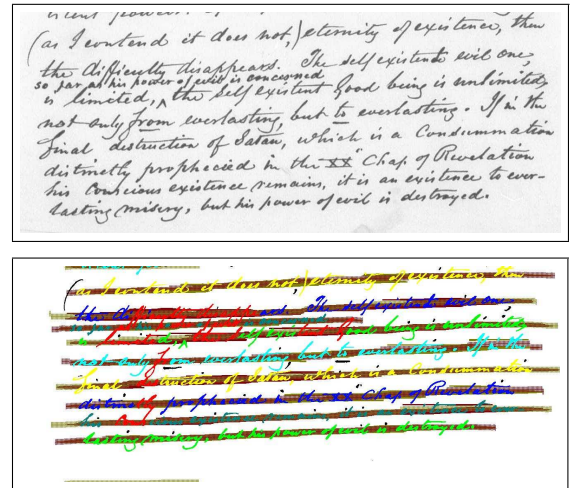 (as I contend it does not,) eternity of existence, then
the difficulty disappears. The self existent evil one,
so far as his power of evil is concerned
is limited, ^ the Self existent Good being is unlimited,
not only from everlasting, but to everlasting. If in the
final distruction of Satan, which is a Consummation
distinctly prophecied in the XX" Chap of Revelation
his Conscious existence remains, it is an existence to ever-
lasting misery, but his power of evil is destroyed.
(as I contend it does not,) eternity of existence, then
the disappears. The self existent evil one,
Good being is unlimited,
not only from everlasting, but to everlasting. If in the
final distruction of Satan, which is a Consummation
distinctly prophecied in the XX" Chap of Revelation
his
lasting misery, but his power of evil is destroyed.